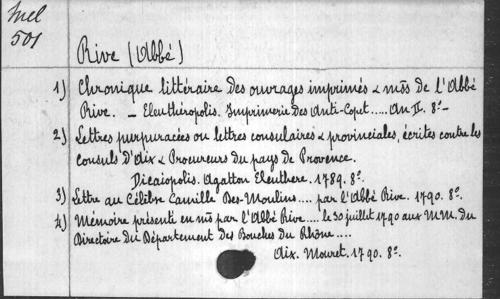 Mel
501
Rive (Abbé)
1) Chronique littéraire des ouvrages imprimés & mss de l'Abbé
Rive. — Eleuthéropolis. Imprimerie des Anti-Copet..... An II. 8º —
2) Lettres purpuracées ou lettres consulaires & provinciales, écrites contre les
consuls d'Aix & Procureurs du pays de Provence.
Dicaiopolis. Agatton Eleuthere. 1789. 8º.
3) Lettre au Célèbre Camille Des-Moulins.... par l'Abbé Rive. 1790. 8º.
4) Mémoire présenté en ms par l'Abbé Rive.... le 30 juillet 1790 aux M.M. du
Directoire du Département des Bouches du Rhône....
Aix. Mouret. 1790. 8º.